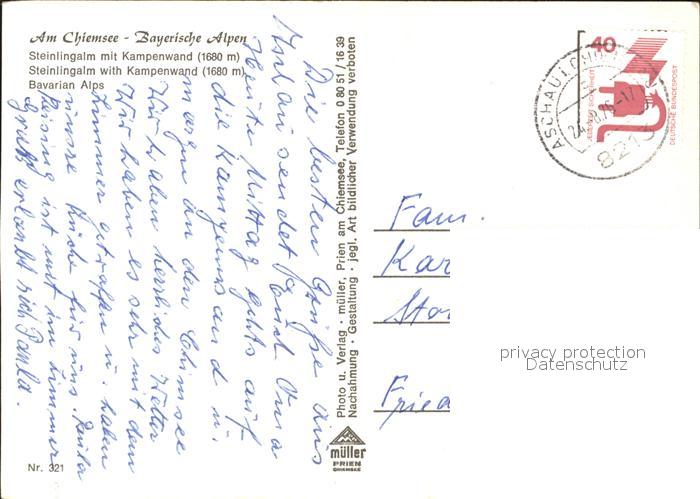 Am Chiemsee - Bayerische Alpen
Steinlingalm mit Kampenwand (1680 m)
Steinlingalm with Kampenwand (1680 m)
Bavarian Alps
Die besten Grüße aus
Aschau sendet Euch Oma
Heute Mittag gehts auf
die Kampenwand u.
morgen an den Chimsee
Wir haben herrliches Wetter
Wir haben es sehr mit dem
Zimmer getroffen u. haben
unsre Küche für uns.
ist mit im Zimmer
Gruß erlaubt sich Paula.
Photo u. Verlag · müller, Prien am Chiemsee, Telefon 0 80 51 / 16 39
Nachahmung · Gestaltung · jegl. Art bildlicher Verwendung verboten
müller
PRIEN
CHIEMSEE
Nr. 321
40
JEDERZEIT SICHERHEIT
DEUTSCHE BUNDESPOST
8213
Fam.
Kar
Sto
Fried
privacy protection
Datenschutz